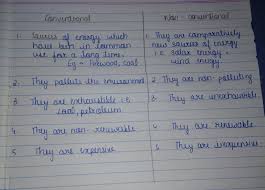 Conventional
Non - conventional
1. Sources of energy which
have been in common
use for a long time.
Eg - firewood, coal
2. They pollute the environment
3 They are exhaustible i.e
coal, petroleum
4 They are non renewable
5 They are expensive
1. They are comparatively
new sources of energy
i.e. solar energy
wind energy.
2. They are non-polluting
3. They are inexhaustible
4 They are renewable
5 They are inexpensive